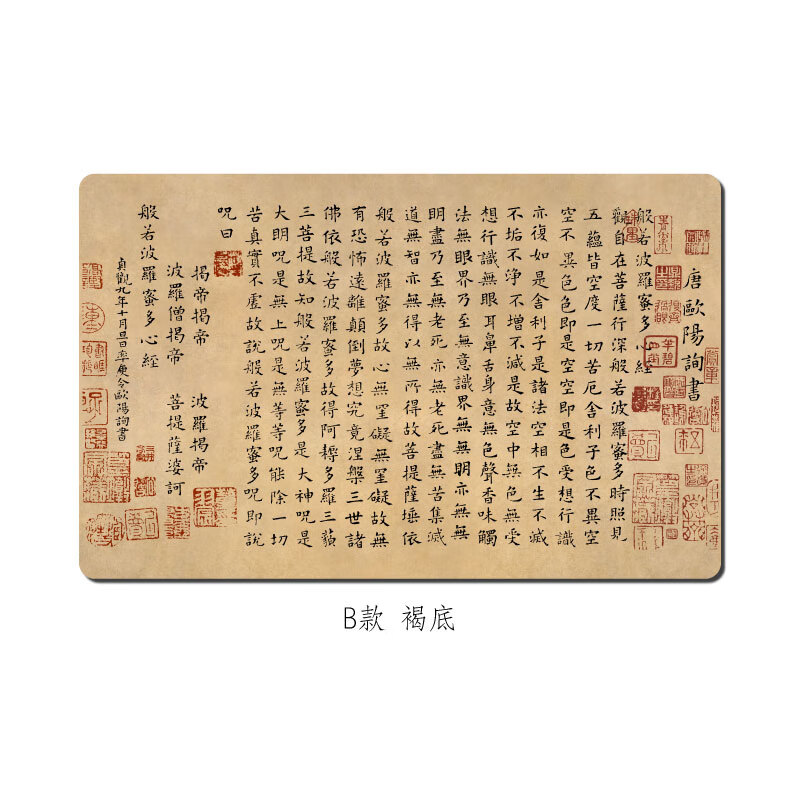 唐歐陽詢書
般若波羅蜜多心經
觀自在菩薩行深般若波羅蜜多時照見
五蘊皆空度一切苦厄舍利子色不異空
空不異色色即是空空即是色受想行識
亦復如是舍利子是諸法空相不生不滅
不垢不淨不增不減是故空中無色無受
想行識無眼耳鼻舌身意無色聲香味觸
法無眼界乃至無意識界無無明亦無無
明盡乃至無老死亦無老死盡無苦集滅
道無智亦無得以無所得故菩提薩埵依
般若波羅蜜多故心無罣礙無罣礙故無
有恐怖遠離顛倒夢想究竟涅槃三世諸
佛依般若波羅蜜多故得阿耨多羅三藐
三菩提故知般若波羅蜜多是大神呪是
大明呪是無上呪是無等等呪能除一切
苦真實不虛故說般若波羅蜜多呪即說
呪曰
揭帝揭帝 波羅揭帝
波羅僧揭帝 菩提薩婆訶
般若波羅蜜多心經
貞觀九年十月旦日率更令歐陽詢書
B款 褐底